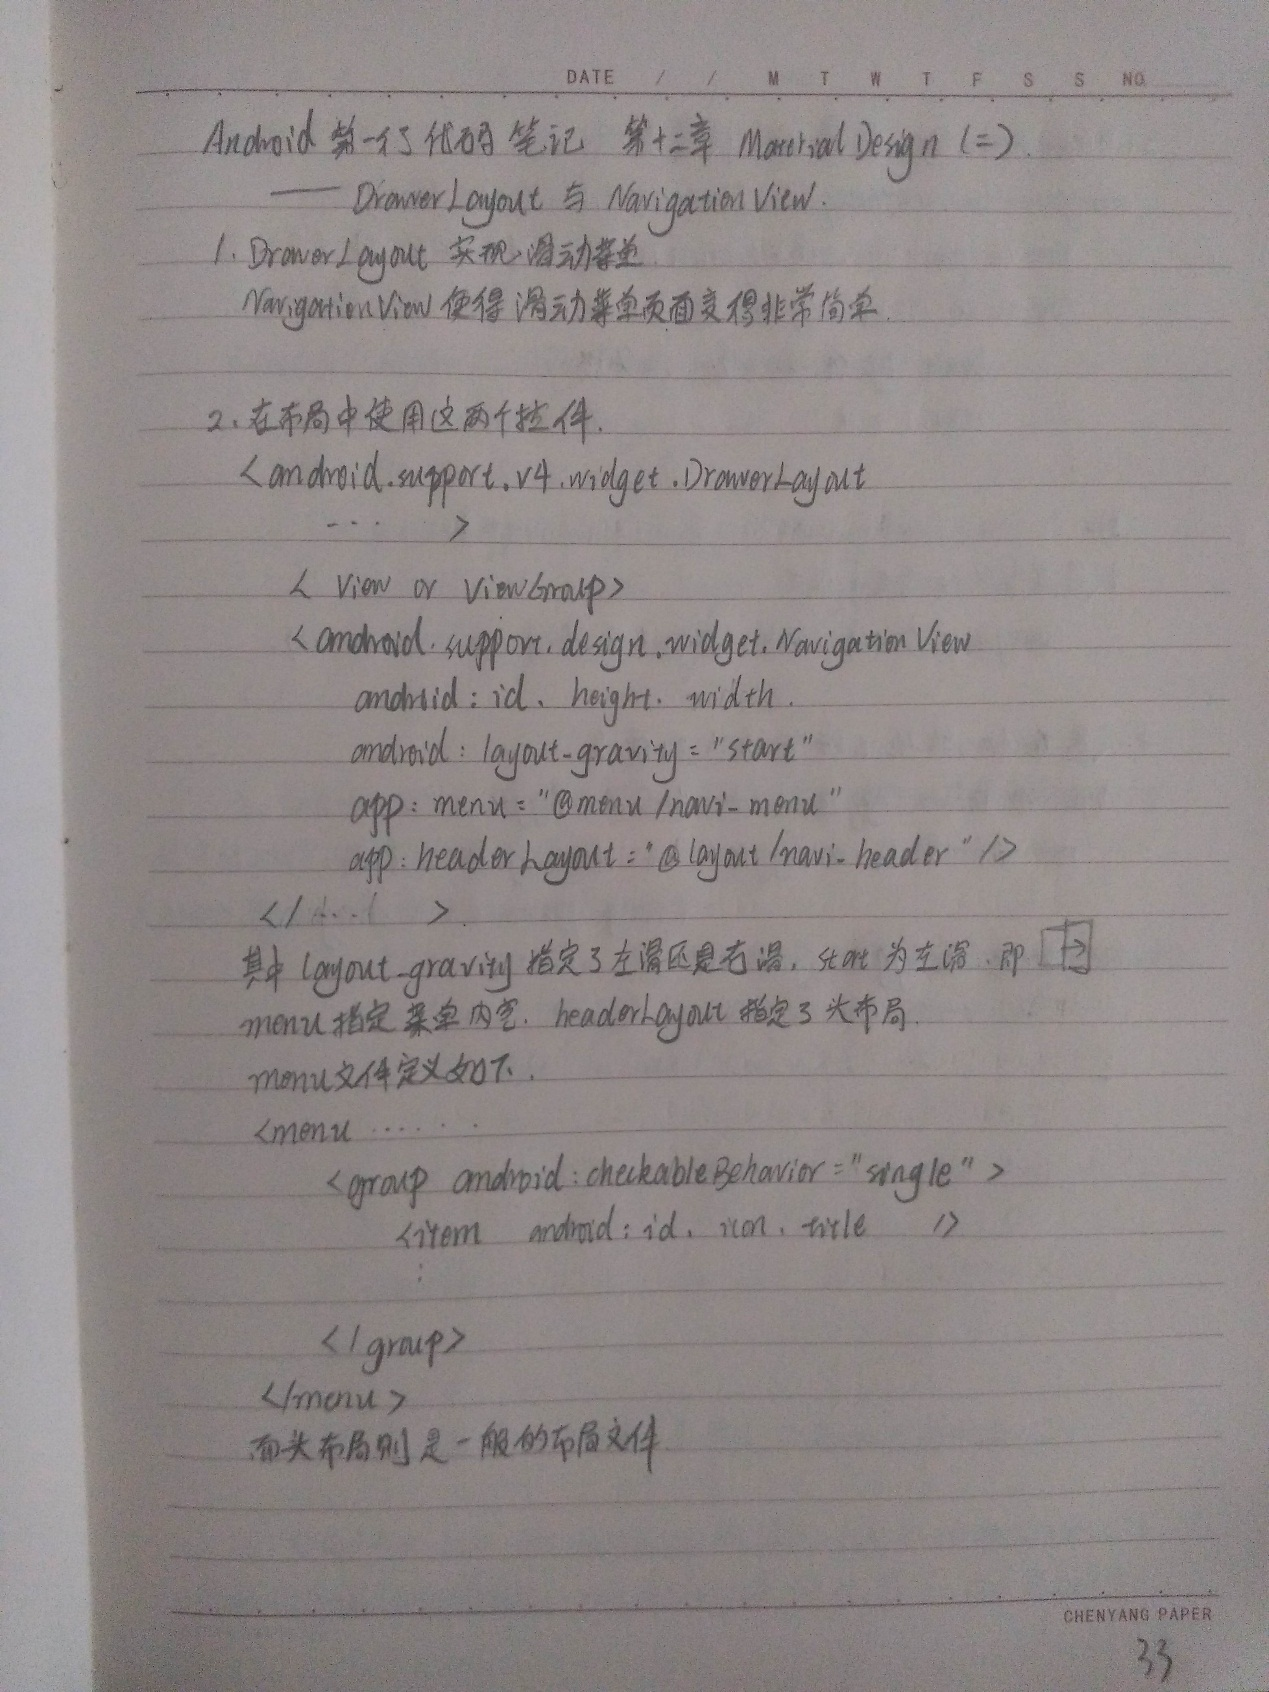 DATE / / M T W T F S S NO.
Android 第一行代码 笔记 第十二章 Material Design (二).
—— DrawerLayout 与 NavigationView.
1. DrawerLayout 实现滑动菜单
NavigationView 使得滑动菜单页面变得非常简单.
2、在布局中使用这两个控件.
<android.support.v4.widget.DrawerLayout
.... >
< View or ViewGroup>
<android.support.design.widget.NavigationView
android:id、height、width.
android:layout_gravity="start"
app:menu="@menu/navi_menu"
app:headerLayout="@layout/navi_header"/>
</ >
其中layout_gravity指定了左滑还是右滑, start为左滑、即
menu指定菜单内容. headerLayout指定了头布局.
menu文件定义如下.
<menu ......
<group android:checkableBehavior="single">
<item android:id、icon、title />
:
</group>
</menu>
而头布局则是一般的布局文件
CHENYANG PAPER
33